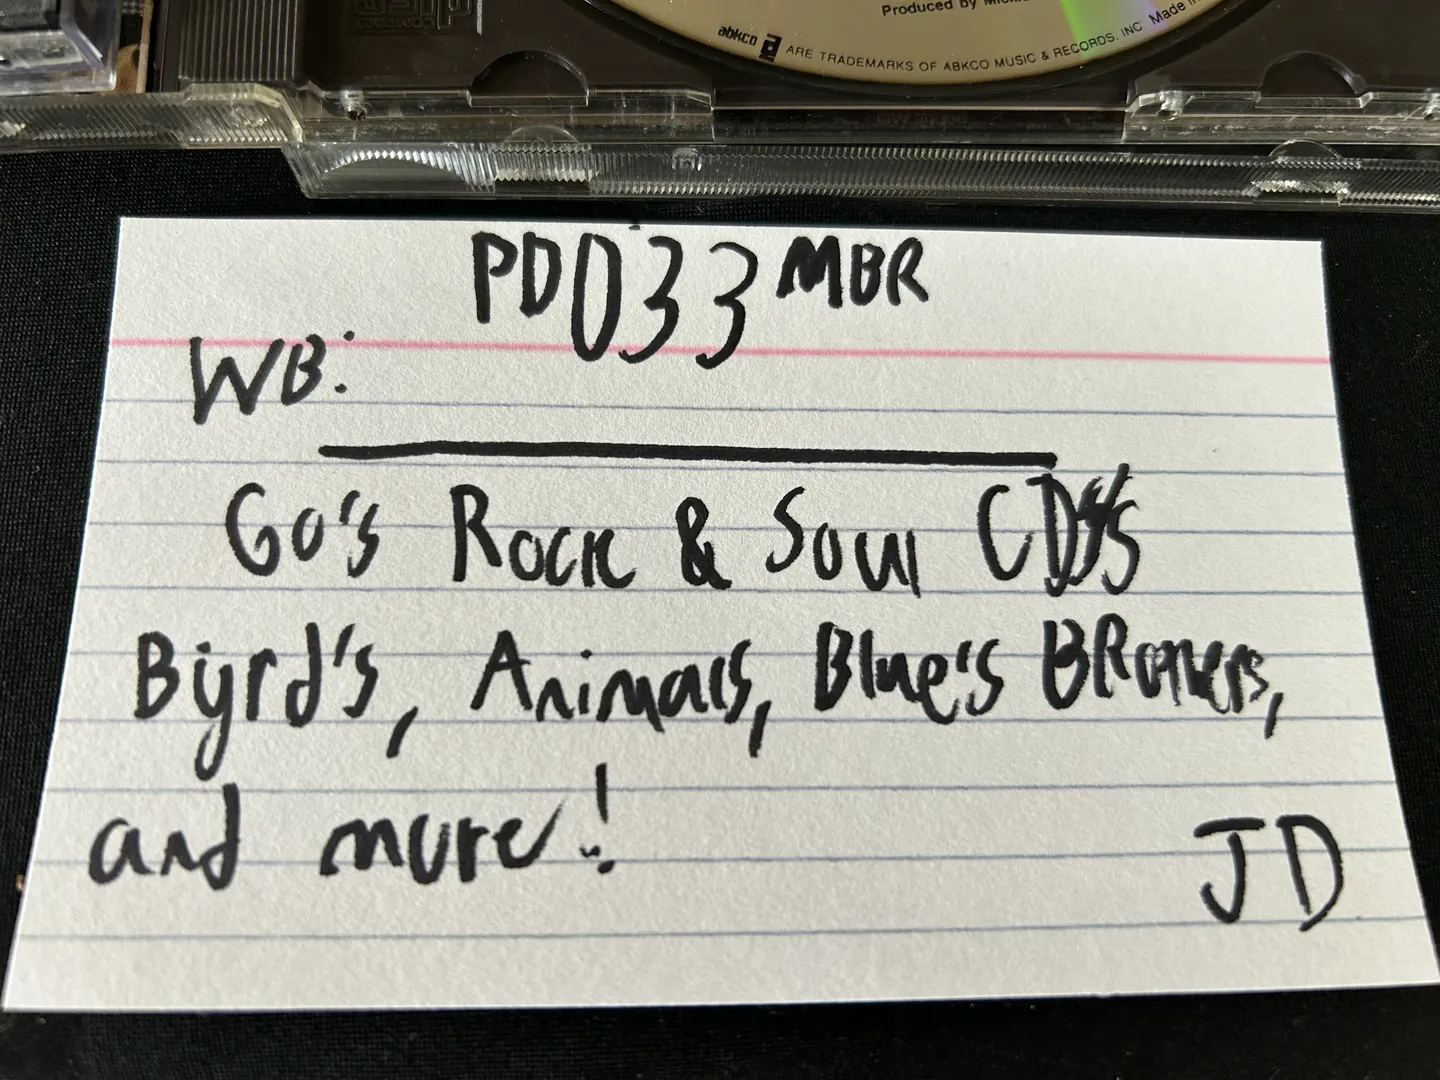 Produced by Micki
abkco ARE TRADEMARKS OF ABKCO MUSIC & RECORDS, INC. Made in
PD033MBR
WB:
60's Rock & Soul CD's
Byrd's, Animals, Blue's BRothers,
and more!
JD